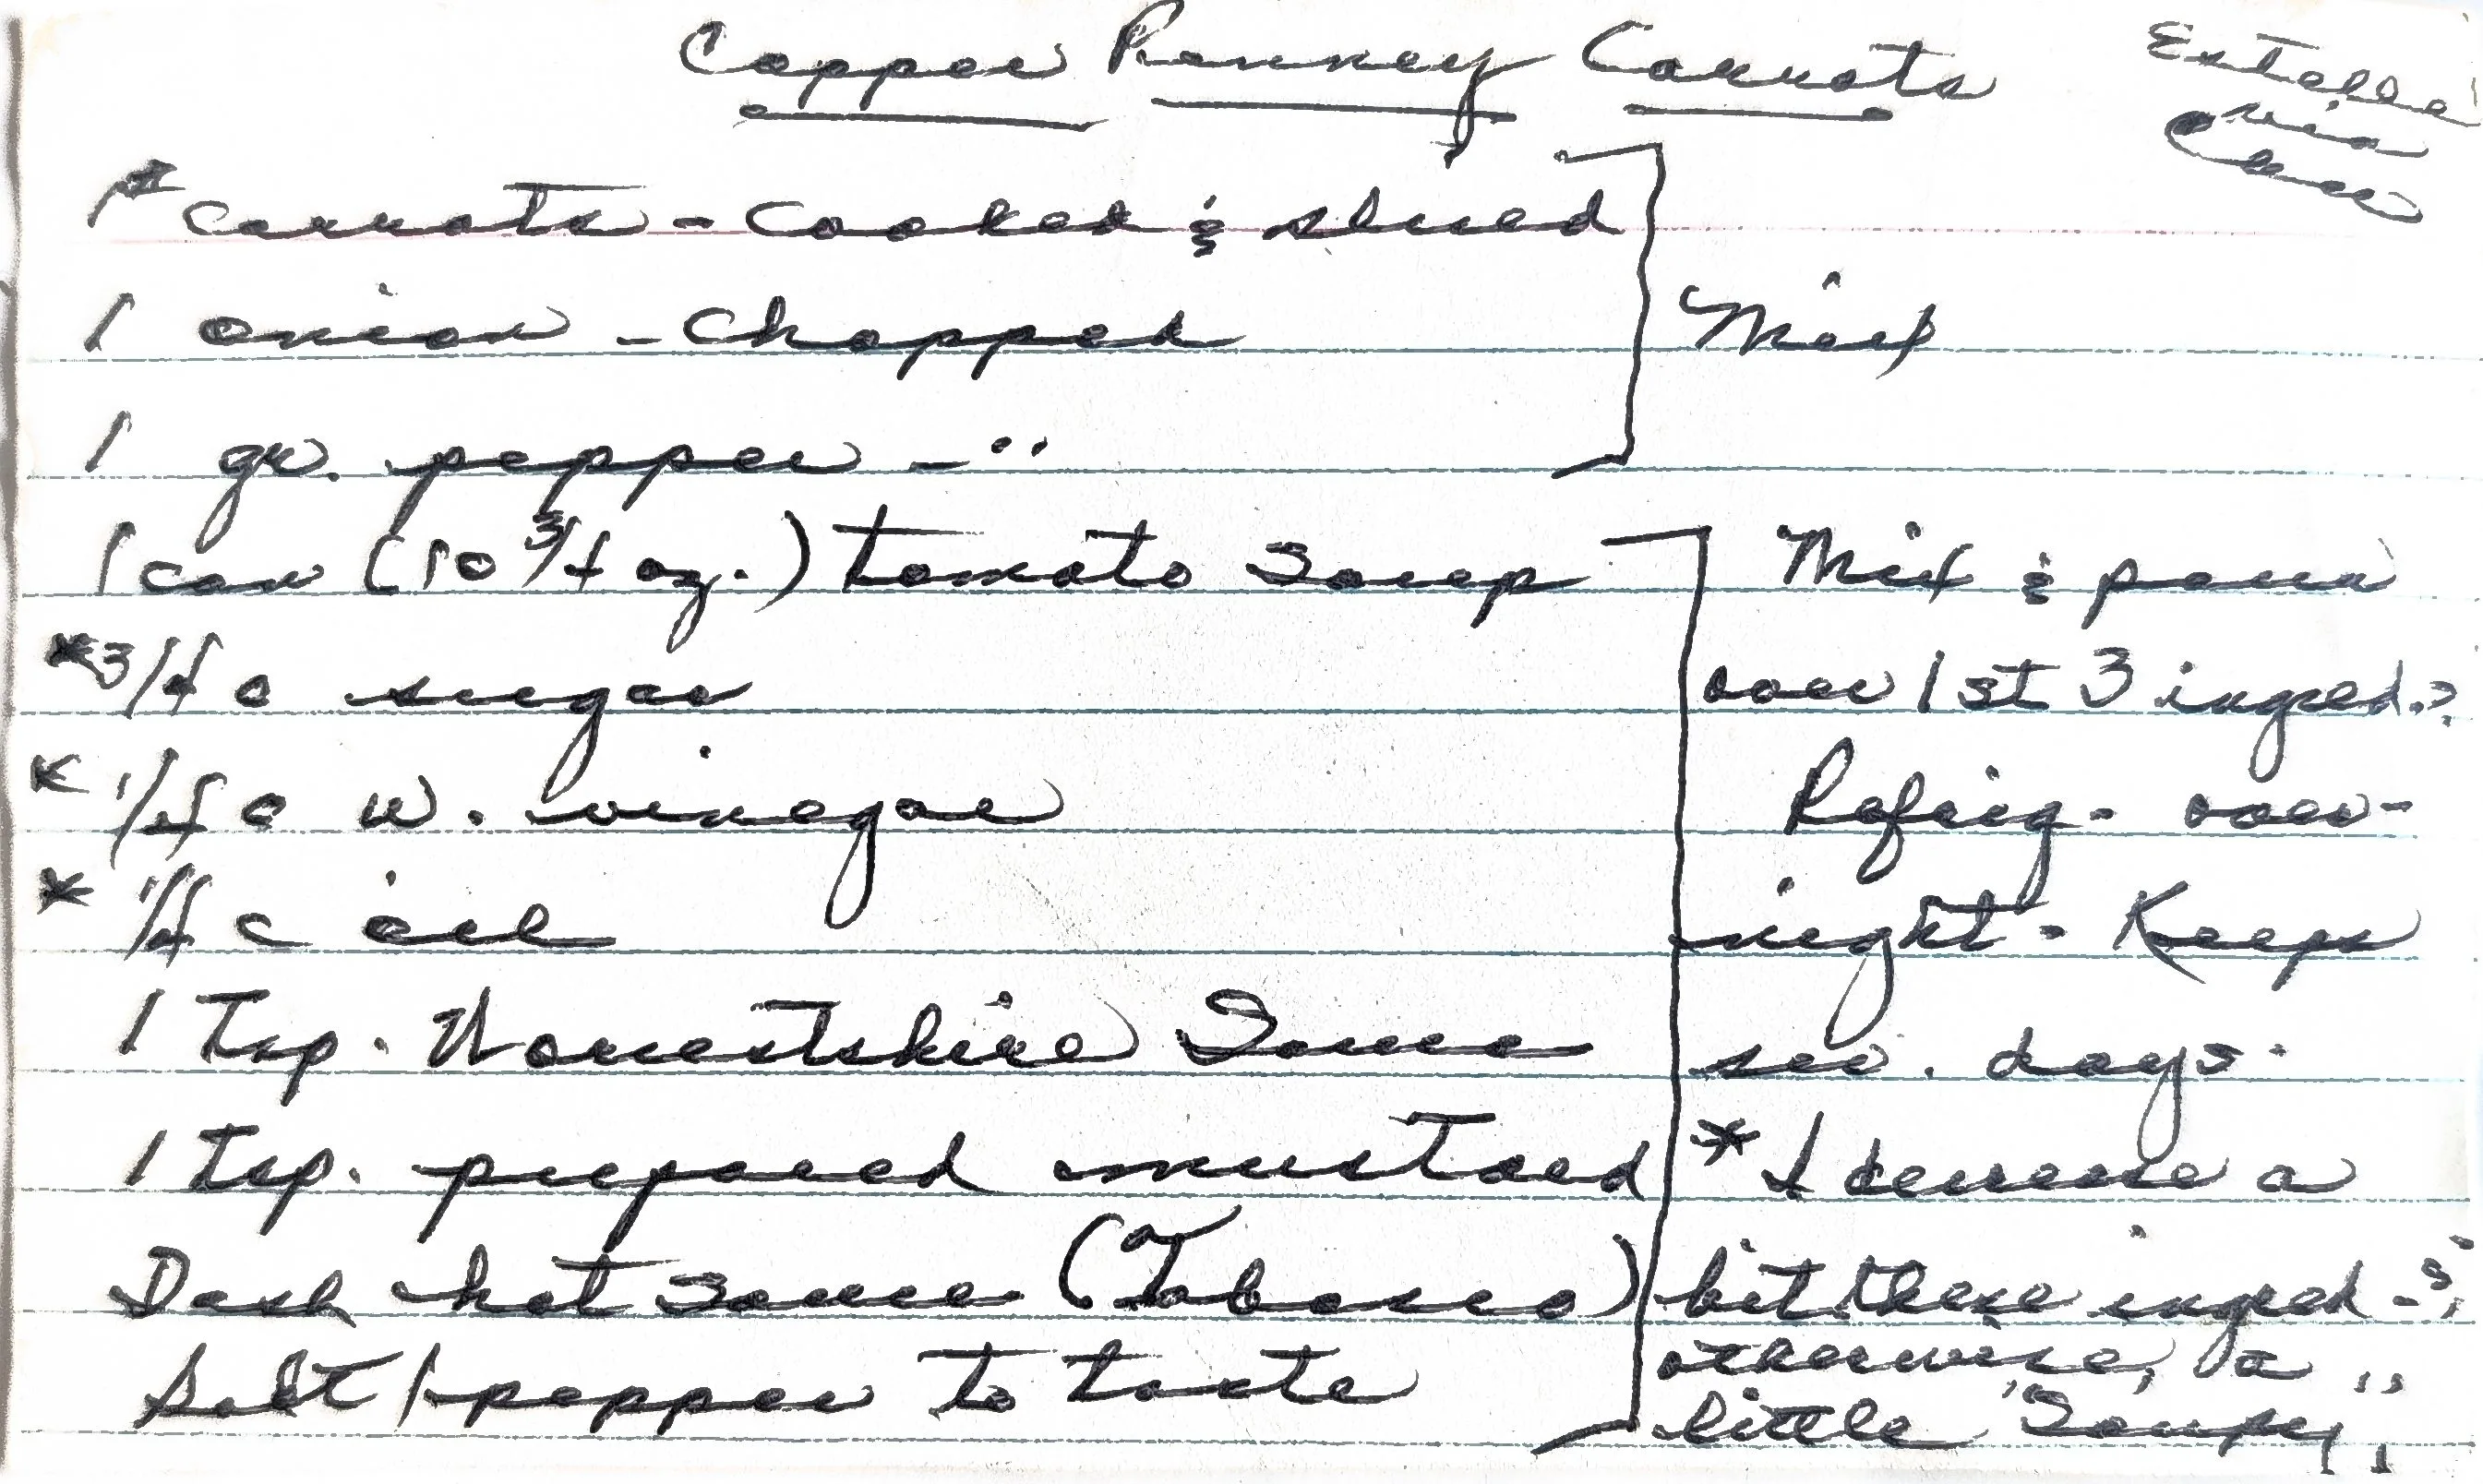 Copper Penney Carrots
Estelle
via
1# carrots - cooked & sliced
1 onion - chopped
Mix
1 gr. pepper - "
1 can (10 3/4 oz.) tomato soup
Mix & pour
*3/4 c sugar
over 1st 3 ingred.;
*1/4 c w. vinegar
Refrig. over-
* 1/4 c oil
night - Keeps
1 Tsp. Worcestshire Sauce
sev. days.
1 tsp. prepared mustard
* I decrease a
Dash hot sauce (Tobasco)
bit these ingred-s;
Salt/pepper to taste
otherwise, a
little "Soupy"